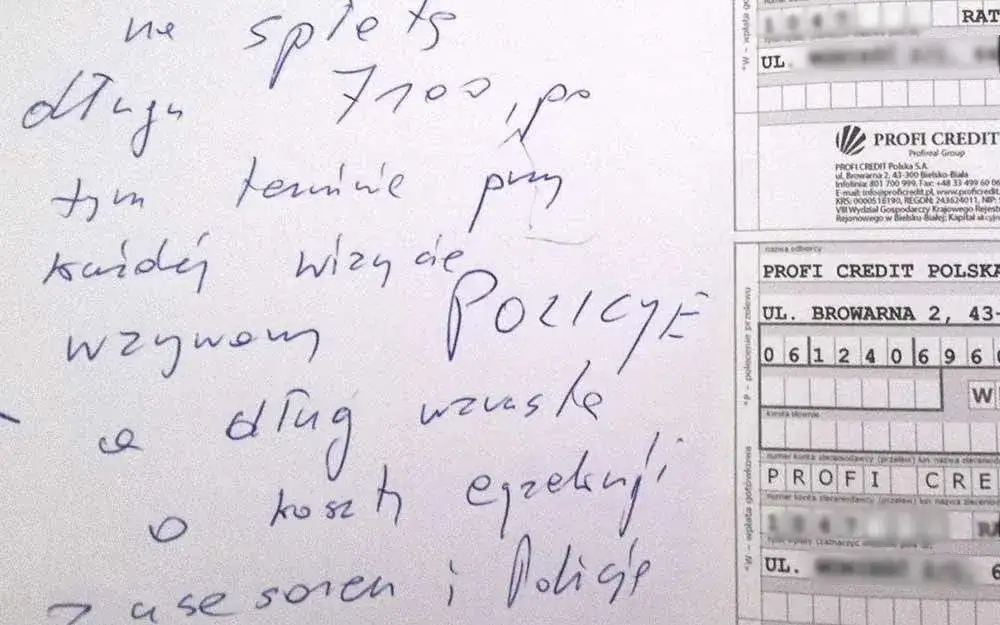 na spłatę
długu 7100, po
tym terminie przy
każdej wizycie
wzywamy POLICYE
a dług wzrasta
o koszty egzekucji
z asesorem i Policję
*W - wpłata go
RAT
UL
PROFI CREDIT
Profireal Group
PROFI CREDIT Polska S.A.
ul. Browarna 2, 43-300 Bielsko-Biała
Infolinia: 801 700 999, Fax: +48 33 499 60 0
E-mail: info@proficredit.pl, www.proficredit.
KRS: 0000518190, REGON: 243624011, NIP:
VIII Wydział Gospodarczy Krajowego Rejest
Rejonowego w Bielsku-Białej; Kapitał akcyj
nazwa odbiorcy
PROFI CREDIT POLSKA
UL. BROWARNA 2, 43-
*P - polecenie przelewu
0 6 1 2 4 0 6 9 6
W
kwota słownie
numer konta zleceniodawcy (przelew) lub nazwa zleceni
P R O F I C R E
numer konta zleceniodawcy (przelew) lub nazwa zleceni
*W - wpłata gotówkowa
RA
UL. 6